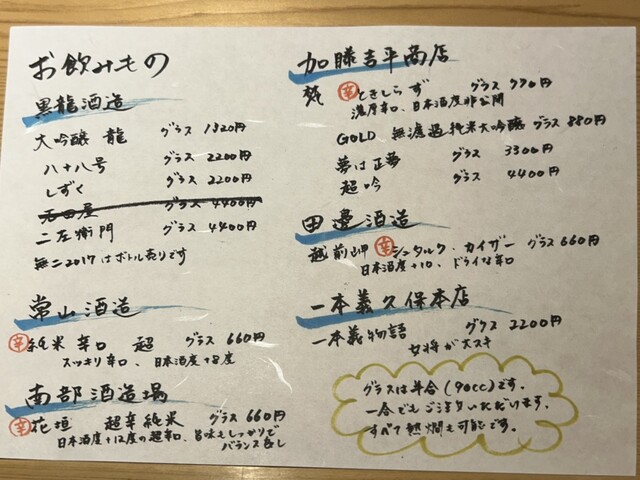 お飲みもの
黒龍酒造
大吟醸 龍 グラス 1320円
八十八号 グラス 2200円
しずく グラス 2200円
石田屋 グラス 4400円
二左衛門 グラス 4400円
無二2017はボトル売りです
常山酒造
辛 純米 辛口 超 グラス 660円
スッキリ辛口、日本酒度+8度
南部酒造場
辛 花垣 超辛純米 グラス 660円
日本酒度+12度の超辛口、旨味もしっかりで
バランス良し
加藤吉平商店
梵 辛 ときしらず グラス 770円
濃厚辛口、日本酒度非公開
GOLD 無濾過 純米大吟醸 グラス 880円
夢は正夢 グラス 3300円
超吟 グラス 4400円
田邊酒造
越前岬 辛 シュタルク・カイザー グラス 660円
日本酒度+10、ドライな辛口
一本義久保本店
一本義物語 グラス 2200円
女将が大スキ
グラスは半合(90cc)です。
一合でもご注文いただけます。
すべて熱燗も可能です。